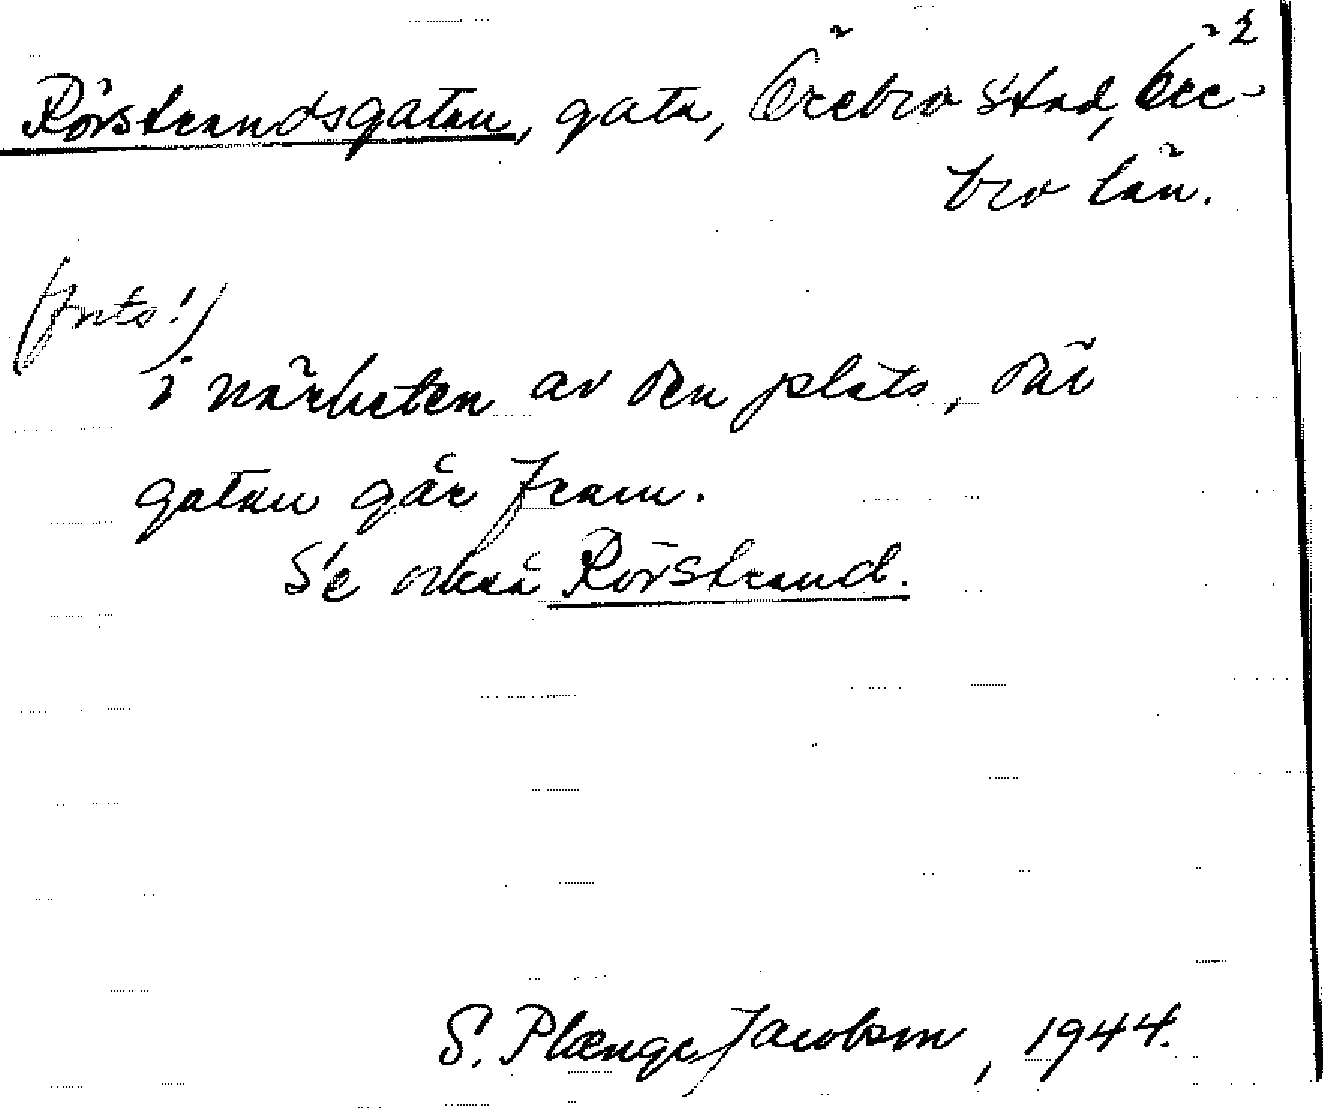 2
Rörstrandsgatan, gata, Örebro stad, Öre-
bro län.
(forts!)
i närheten av den plats, där
gatan går fram.
Se också Rörstrand.
S. Plænge Jacobson, 1944.